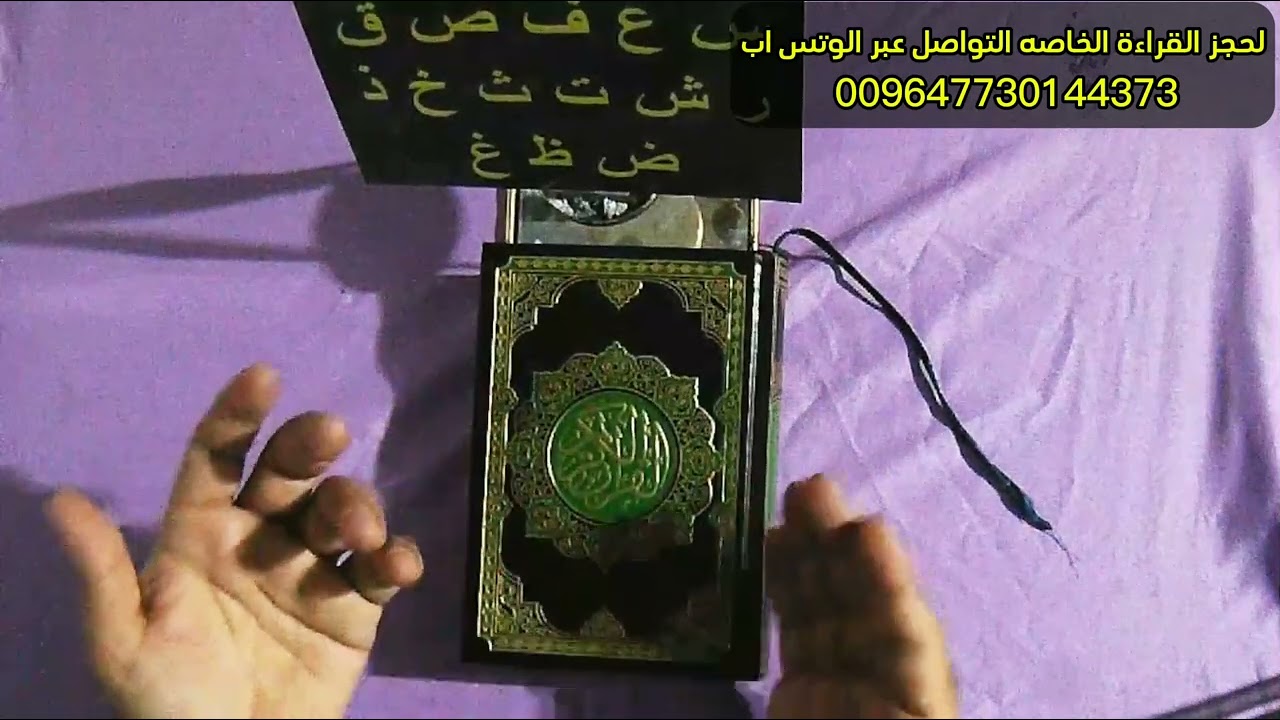 لحجز القراءة الخاصه التواصل عبر الوتس اب
009647730144373
س ع ف ص ق
ر ش ت ث خ ذ
ض ظ غ
القرآن الكريم